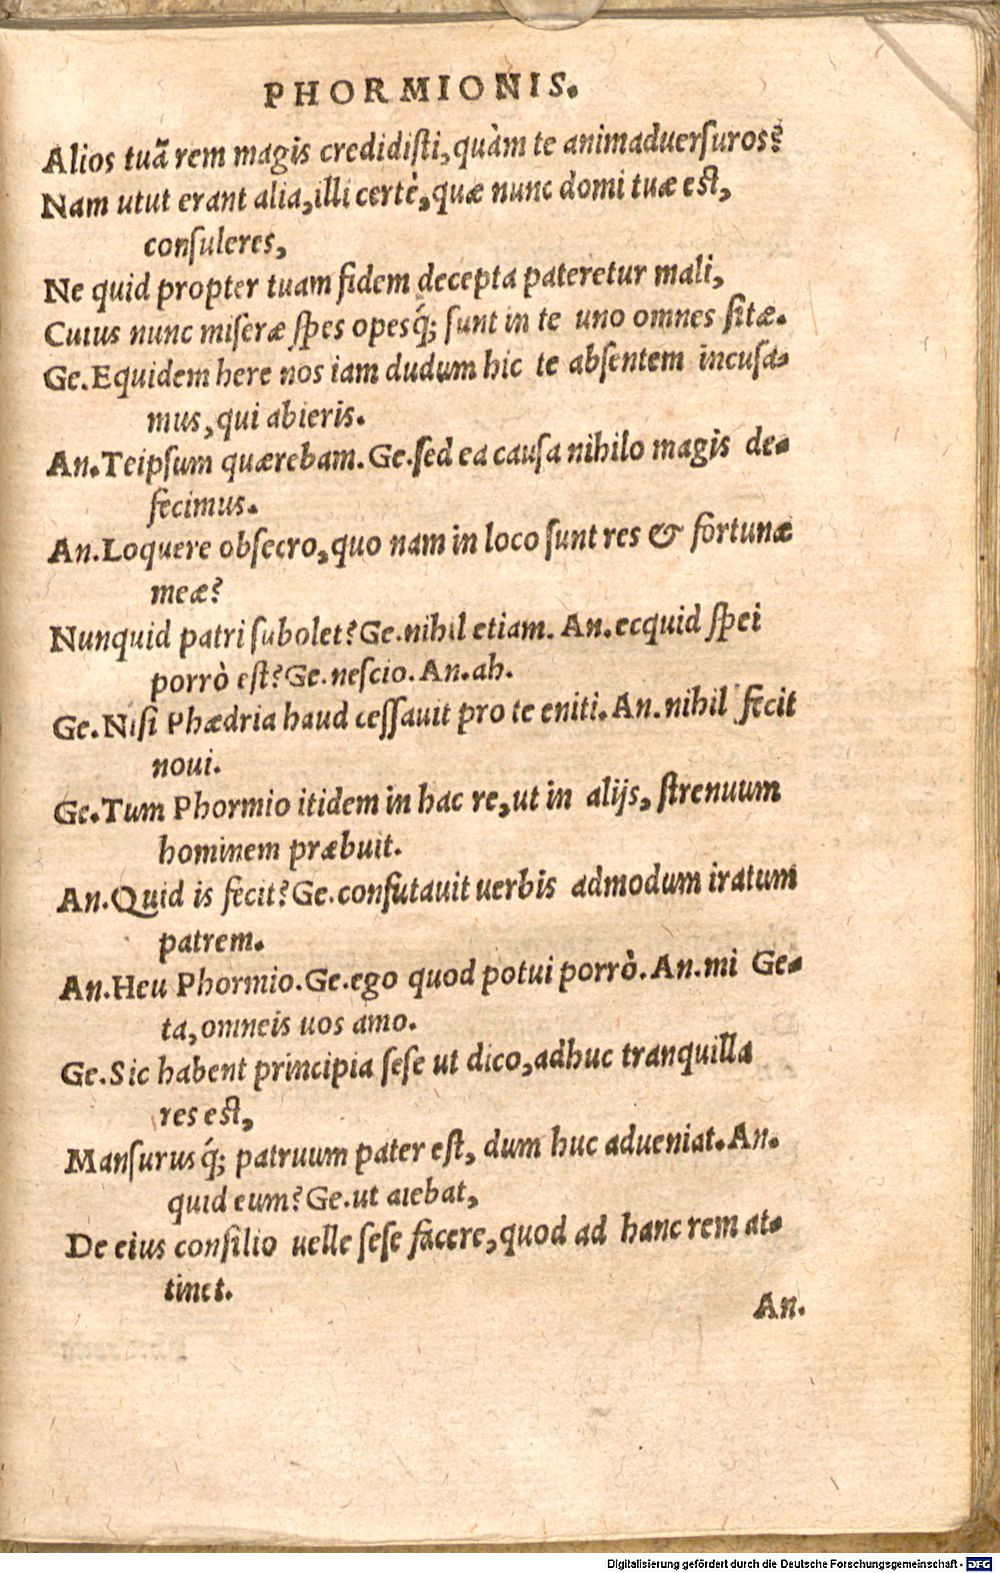 PHORMIONIS.
Alios tuã rem magis credidiſti, quàm te animaduerſuros?
Nam utut erant alia, illi certè, quæ nunc domi tuæ eſt,
conſuleres,
Ne quid propter tuam fidem decepta pateretur mali,
Cuius nunc miſeræ ſpes opesq́; ſunt in te uno omnes ſitæ.
Ge. Equidem here nos iam dudum hic te abſentem incuſa-
mus, qui abieris.
An. Teipſum quærebam. Ge. ſed ea cauſa nihilo magis de-
fecimus.
An. Loquere obſecro, quo nam in loco ſunt res & fortunæ
meæ?
Nunquid patri ſubolet? Ge. nihil etiam. An. ecquid ſpei
porrò eſt? Ge. neſcio. An. ah.
Ge. Niſi Phædria haud ceſſauit pro te eniti. An. nihil fecit
noui.
Ge. Tum Phormio itidem in hac re, ut in alijs, ſtrenuum
hominem præbuit.
An. Quid is fecit? Ge. confutauit uerbis admodum iratum
patrem.
An. Heu Phormio. Ge. ego quod potui porrò. An. mi Ge-
ta, omneis uos amo.
Ge. Sic habent principia ſeſe ut dico, adhuc tranquilla
res eſt,
Manſurusq́; patruum pater eſt, dum huc adueniat. An.
quid eum? Ge. ut aiebat,
De eius conſilio uelle ſeſe facere, quod ad hanc rem at-
tinet.
An.
Digitalisierung gefördert durch die Deutsche Forschungsgemeinschaft - DFG